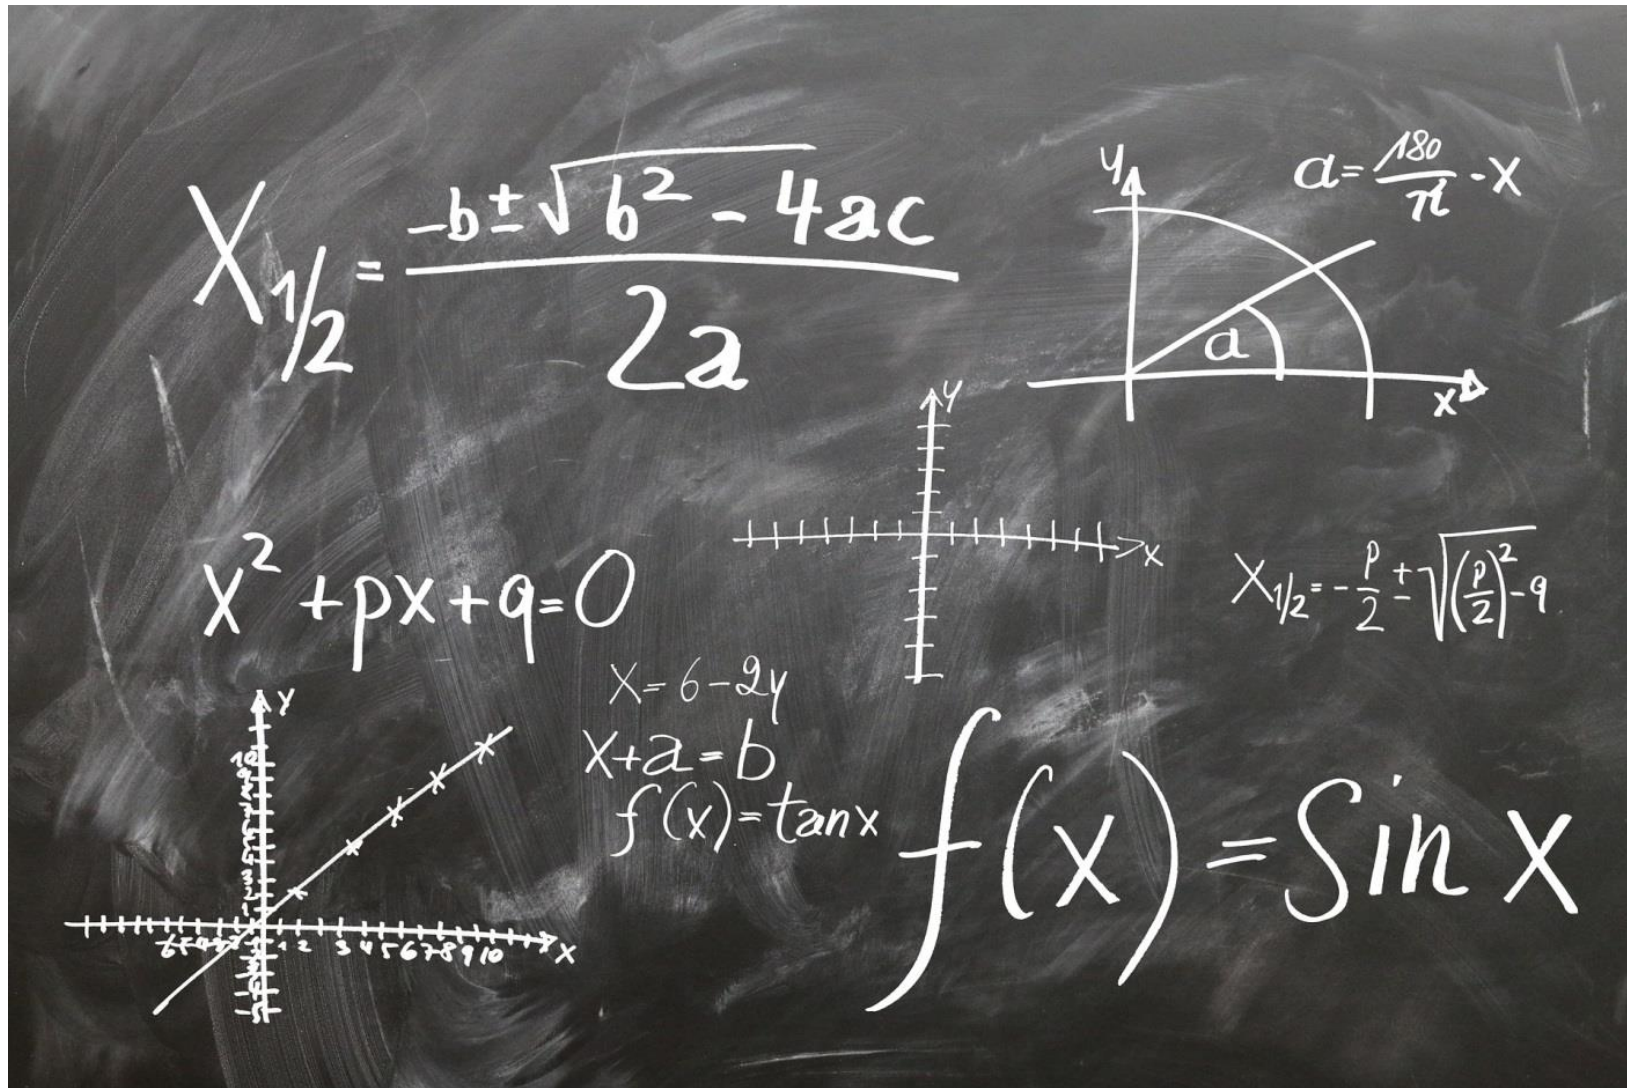 X₁/₂ = (-b ± √(b² - 4ac)) / 2a
y
a = 180/π - x
a
x
y
x
x² + px + q = 0
X₁/₂ = -p/2 ± √((p/2)² - q)
x = 6 - 2y
x + a = b
f(x) = tan x
f(x) = Sin x
y
10
1 2 3 4 5 6 7 8 9 10
x